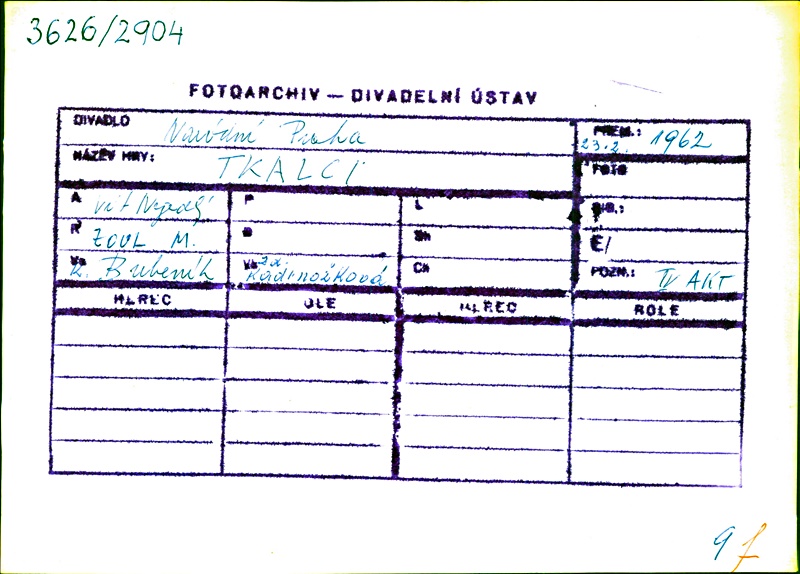 3626/2904
FOTOARCHIV — DIVADELNÍ ÚSTAV
DIVADLO Národní Praha
PREM.: 23.2. 1962
NÁZEV HRY: TKALCI
FOTO
A vít Nejedlý P L
R ZOUL M. Sh
K. Bubeník Ch
POZN.: IV AKT
HEREC ROLE HEREC ROLE
9